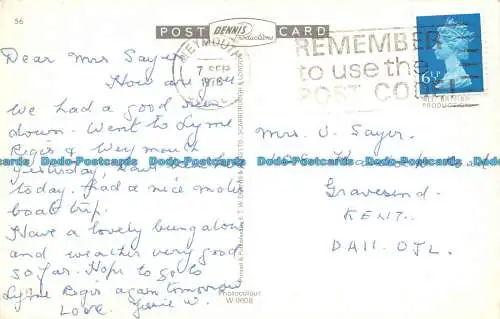 56
POST CARD
DENNIS
Productions
WEYMOUTH
7 SEP
1976
REMEMBER
to use the
POST CODE
6½P
ALL BRITISH
PRODUCTION
Dear Mrs Sayer
How are you
We had a good run
down. Went to Lyme
Regis & Weymouth
yesterday,
today. Had a nice motor
boat trip.
Have a lovely bungalow
and weather very good
so far. Hope to go to
Lyme Regis again tomorrow
Love
Mrs. V. Sayer.
Gravesend.
KENT.
DA11 0JL.
Dodo-Postcards Dodo-Postcards Dodo-Postcards Dodo-Postcards Dodo-Postcards
Dodo-Postcards Dodo-Postcards Dodo-Postcards Dodo-Postcards Dodo-Postcards
Photocolour
W 0608